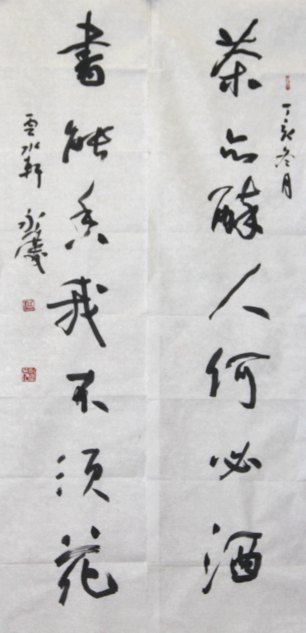 丁亥冬月
茶亦醉人何必酒
書能香我不須花
雲水軒 永慶